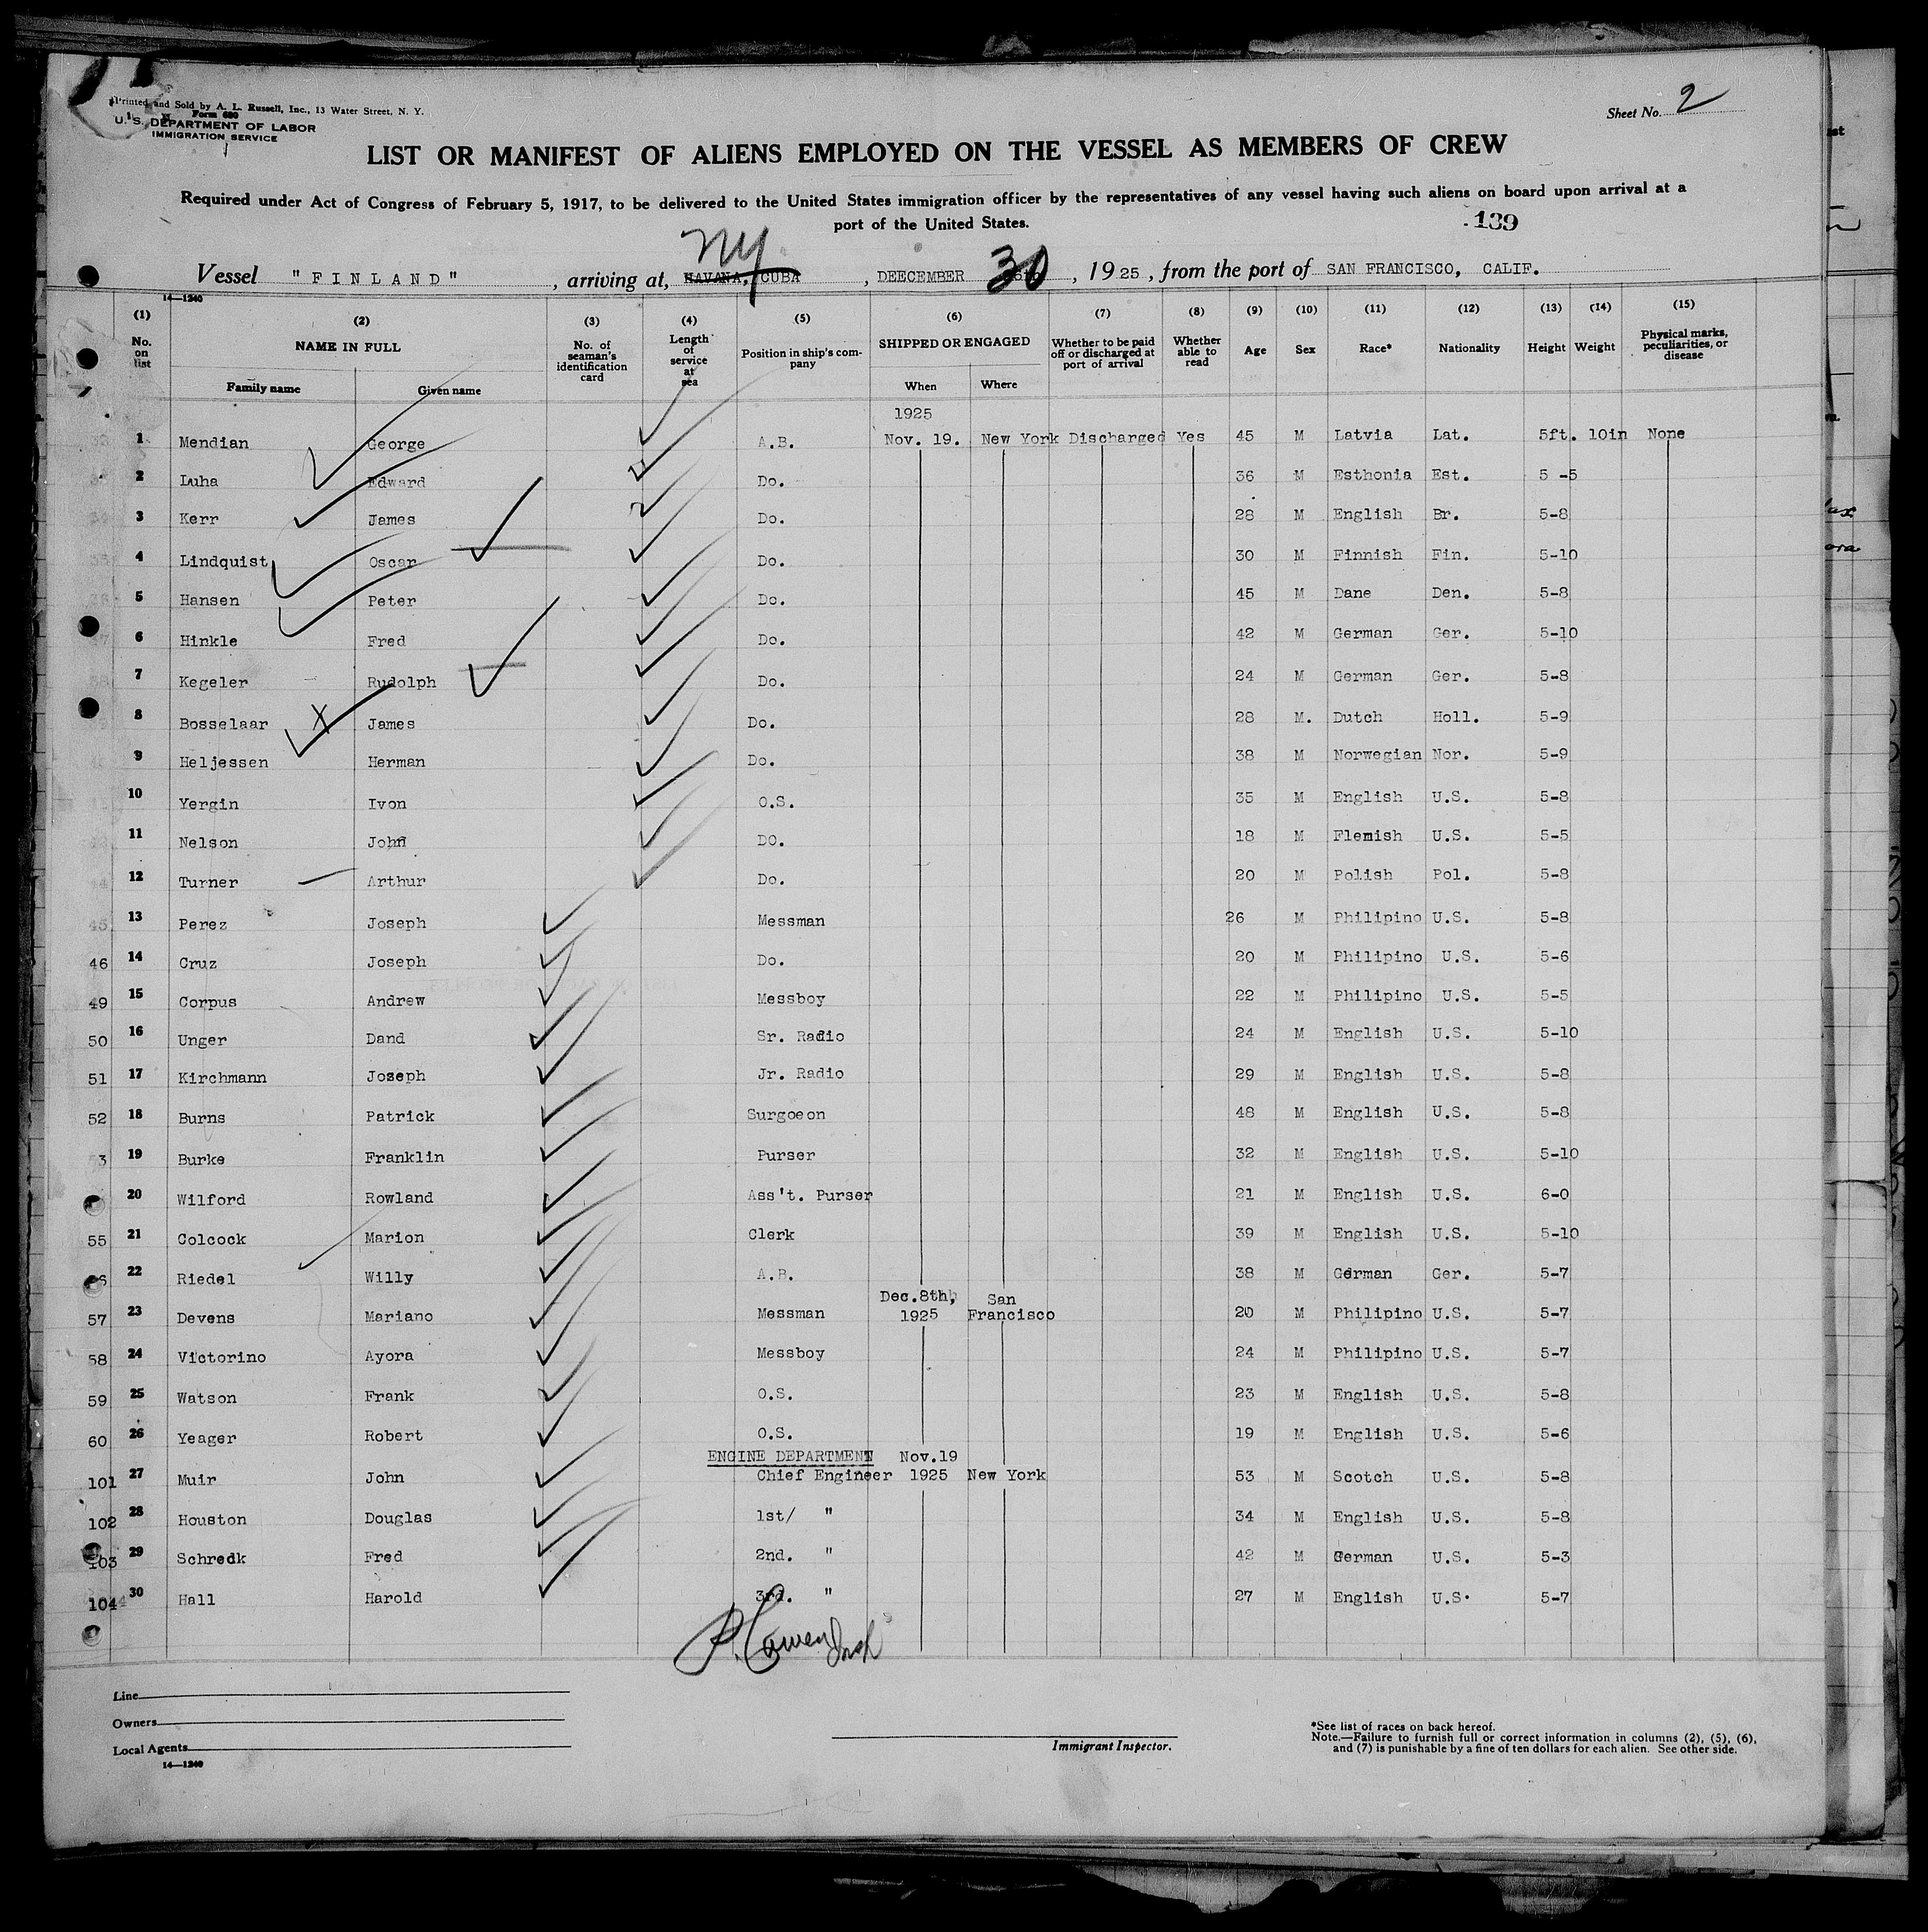 Printed and Sold by A. L. Russell, Inc., 13 Water Street, N. Y.
Form 680
U. S. DEPARTMENT OF LABOR
IMMIGRATION SERVICE
Sheet No. 2
LIST OR MANIFEST OF ALIENS EMPLOYED ON THE VESSEL AS MEMBERS OF CREW
Required under Act of Congress of February 5, 1917, to be delivered to the United States immigration officer by the representatives of any vessel having such aliens on board upon arrival at a
port of the United States.
139
NY
Vessel "FINLAND", arriving at, HAVANA, CUBA, DEECEMBER 30, 1925, from the port of SAN FRANCISCO, CALIF.
14—1240
(1) (2) (3) (4) (5) (6) (7) (8) (9) (10) (11) (12) (13) (14) (15)
No. on list NAME IN FULL No. of seaman's identification card Length of service at sea Position in ship's company SHIPPED OR ENGAGED Whether to be paid off or discharged at port of arrival Whether able to read Age Sex Race* Nationality Height Weight Physical marks, peculiarities, or disease
Family name Given name When Where
1925
1 Mendian George A.B. Nov. 19. New York Discharged Yes 45 M Latvia Lat. 5ft. 10in None
2 Luha Edward Do. 36 M Esthonia Est. 5 -5
3 Kerr James Do. 28 M English Br. 5-8
4 Lindquist Oscar Do. 30 M Finnish Fin. 5-10
5 Hansen Peter Do. 45 M Dane Den. 5-8
6 Hinkle Fred Do. 42 M German Ger. 5-10
7 Kegeler Rudolph Do. 24 M German Ger. 5-8
8 Bosselaar X James Do. 28 M. Dutch Holl. 5-9
9 Heljessen Herman Do. 38 M Norwegian Nor. 5-9
10 Yergin Ivon O.S. 35 M English U.S. 5-8
11 Nelson John DO. 18 M Flemish U.S. 5-5
12 Turner Arthur Do. 20 M Polish Pol. 5-8
45 13 Perez Joseph Messman 26 M Philipino U.S. 5-8
46 14 Cruz Joseph Do. 20 M Philipino U.S. 5-6
49 15 Corpus Andrew Messboy 22 M Philipino U.S. 5-5
50 16 Unger Dand Sr. Radio 24 M English U.S. 5-10
51 17 Kirchmann Joseph Jr. Radio 29 M English U.S. 5-8
52 18 Burns Patrick Surgoeon 48 M English U.S. 5-8
3 19 Burke Franklin Purser 32 M English U.S. 5-10
20 Wilford Rowland Ass't. Purser 21 M English U.S. 6-0
55 21 Colcock Marion Clerk 39 M English U.S. 5-10
6 22 Riedel Willy A.B. 38 M German Ger. 5-7
Dec.8th, San
57 23 Devens Mariano Messman 1925 Francisco 20 M Philipino U.S. 5-7
58 24 Victorino Ayora Messboy 24 M Philipino U.S. 5-7
59 25 Watson Frank O.S. 23 M English U.S. 5-8
60 26 Yeager Robert O.S. 19 M English U.S. 5-6
ENGINE DEPARTMENT Nov.19
101 27 Muir John Chief Engineer 1925 New York 53 M Scotch U.S. 5-8
102 28 Houston Douglas 1st/ " 34 M English U.S. 5-8
103 29 Schredk Fred 2nd. " 42 M German U.S. 5-3
104 30 Hall Harold 3rd. " 27 M English U.S. 5-7
Line
Owners
Local Agents
14—1240
Immigrant Inspector.
*See list of races on back hereof.
Note.—Failure to furnish full or correct information in columns (2), (5), (6),
and (7) is punishable by a fine of ten dollars for each alien. See other side.